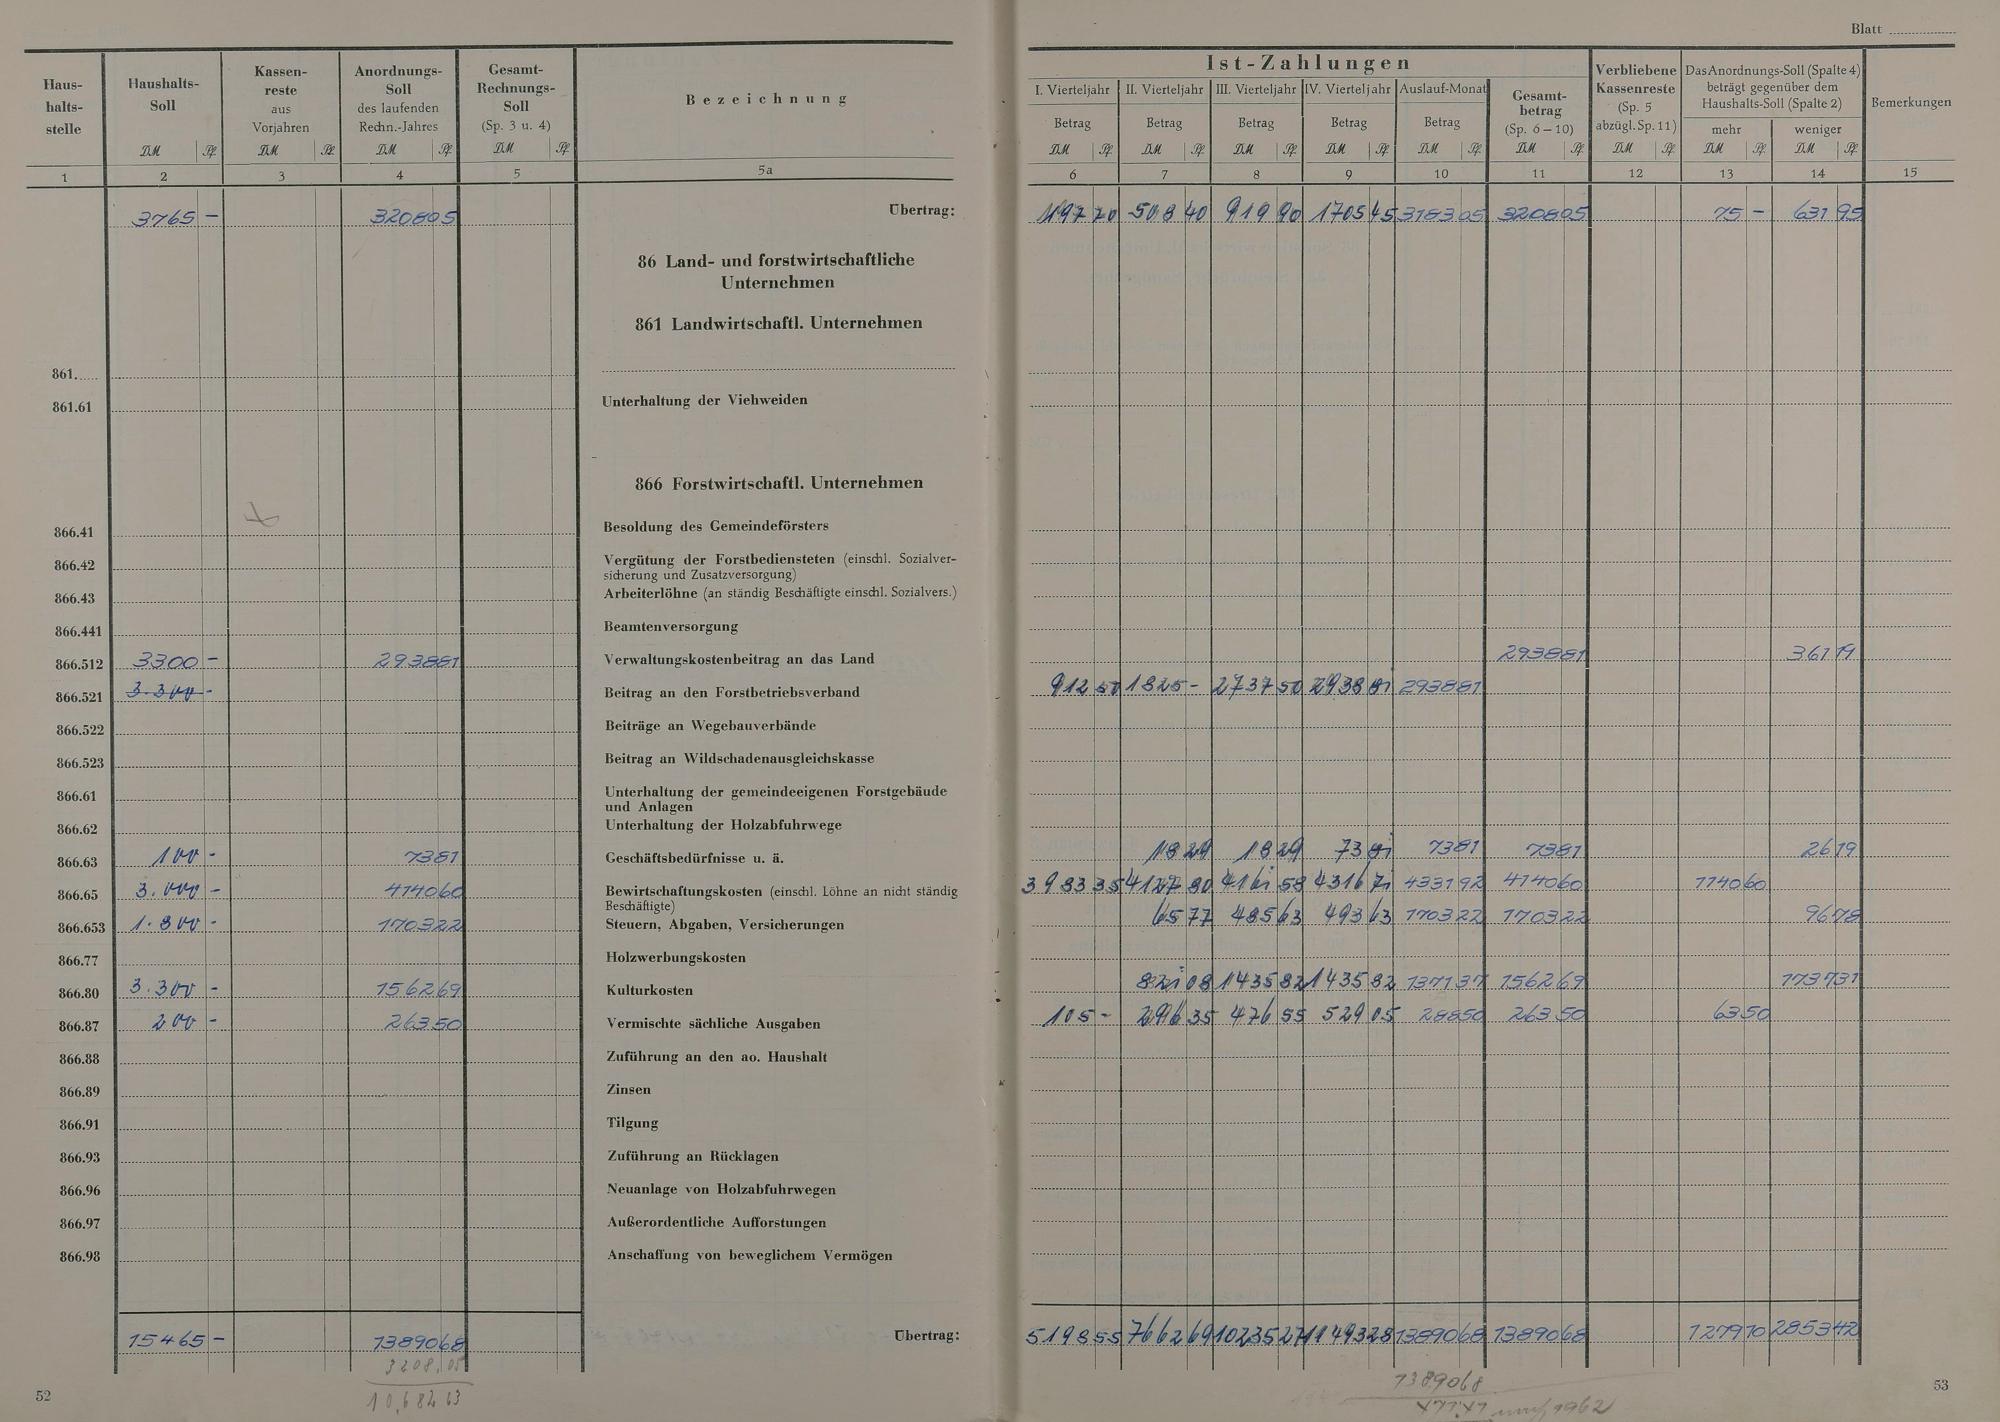 Blatt
Haus-
halts-
stelle
Haushalts-
Soll
DM Pf.
Kassen-
reste
aus
Vorjahren
DM Pf.
Anordnungs-
Soll
des laufenden
Rechn.-Jahres
DM Pf.
Gesamt-
Rechnungs-
Soll
(Sp. 3 u. 4)
DM Pf.
Bezeichnung
Ist-Zahlungen
I. Vierteljahr II. Vierteljahr III. Vierteljahr IV. Vierteljahr Auslauf-Monat
Betrag Betrag Betrag Betrag Betrag
DM Pf. DM Pf. DM Pf. DM Pf. DM Pf.
Gesamt-
betrag
(Sp. 6 – 10)
DM Pf.
Verbliebene
Kassenreste
(Sp. 5
abzügl. Sp. 11)
DM Pf.
Das Anordnungs-Soll (Spalte 4)
beträgt gegenüber dem
Haushalts-Soll (Spalte 2)
mehr weniger
DM Pf. DM Pf.
Bemerkungen
1 2 3 4 5 5a 6 7 8 9 10 11 12 13 14 15
3765 – 3208 05 Übertrag: 508 40 919 90 1705 45 3183 05 3208 05 75 – 631 95
86 Land- und forstwirtschaftliche
Unternehmen
861 Landwirtschaftl. Unternehmen
861.
861.61 Unterhaltung der Viehweiden
866 Forstwirtschaftl. Unternehmen
866.41 Besoldung des Gemeindeförsters
866.42 Vergütung der Forstbediensteten (einschl. Sozialver-
sicherung und Zusatzversorgung)
866.43 Arbeiterlöhne (an ständig Beschäftigte einschl. Sozialvers.)
866.441 Beamtenversorgung
866.512 3300 – 2938 81 Verwaltungskostenbeitrag an das Land 2938 81 361 19
866.521 3.300 - Beitrag an den Forstbetriebsverband 912 50 1825 - 2737 50 2938 81 2938 81
866.522 Beiträge an Wegebauverbände
866.523 Beitrag an Wildschadenausgleichskasse
866.61 Unterhaltung der gemeindeeigenen Forstgebäude
und Anlagen
866.62 Unterhaltung der Holzabfuhrwege
866.63 100 - 73 81 Geschäftsbedürfnisse u. ä. 18 29 18 29 73 81 73 81 73 81 26 19
866.65 3.000 - 4140 60 Bewirtschaftungskosten (einschl. Löhne an nicht ständig
Beschäftigte) 3983 35 4127 80 4161 58 4316 71 4331 92 4140 60 1140 60
866.653 1.800 - 1703 22 Steuern, Abgaben, Versicherungen 65 77 485 63 493 63 1703 22 1703 22 96 78
866.77 Holzwerbungskosten
866.80 3.300 - 1562 69 Kulturkosten 821 08 1435 82 1435 82 1371 37 1562 69 1737 31
866.87 200 - 263 50 Vermischte sächliche Ausgaben 105 - 296 35 476 55 529 05 263 50 63 50
866.88 Zuführung an den ao. Haushalt
866.89 Zinsen
866.91 Tilgung
866.93 Zuführung an Rücklagen
866.96 Neuanlage von Holzabfuhrwegen
866.97 Außerordentliche Aufforstungen
866.98 Anschaffung von beweglichem Vermögen
15465 – 13890 68 Übertrag: 5198 55 7662 69 10235 27 11493 28 13890 68 13890 68 1279 10 2853 42
3208,05
10.682 63
13890 68
1962
52
53